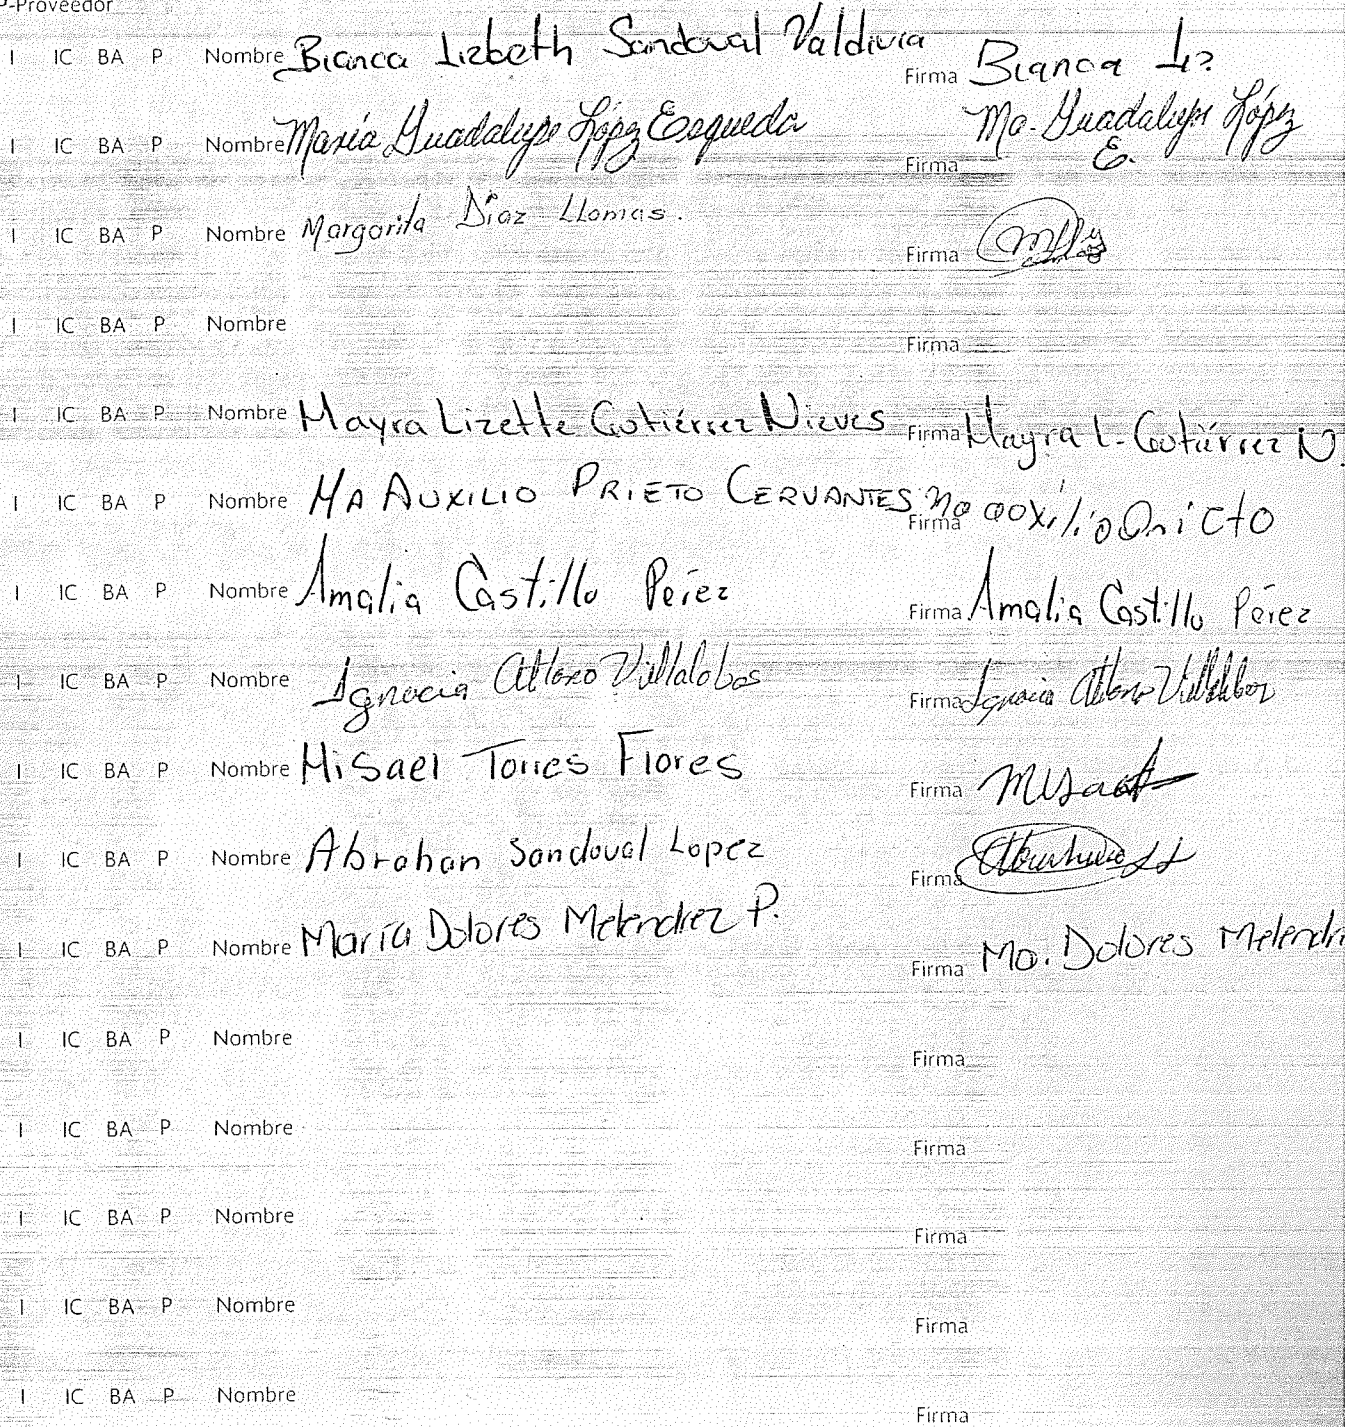 P-Proveedor
I IC BA P Nombre Bianca Lizbeth Sandoval Valdivia Firma Bianca Liz
I IC BA P Nombre María Guadalupe López Esqueda Firma Ma. Guadalupe López E.
I IC BA P Nombre Margarita Díaz Llamas. Firma
I IC BA P Nombre Firma
I IC BA P Nombre Mayra Lizette Gutiérrez Nieves Firma Mayra L. Gutiérrez N.
I IC BA P Nombre MA AUXILIO PRIETO CERVANTES Firma
I IC BA P Nombre Amalia Castillo Pérez Firma Amalia Castillo Pérez
I IC BA P Nombre Ignacia Villalobos Firma Ignacia
I IC BA P Nombre Misael Torres Flores Firma Misael
I IC BA P Nombre Abrahan Sandoval Lopez Firma
I IC BA P Nombre María Dolores Melendrez P. Firma Ma. Dolores Melendr
I IC BA P Nombre Firma
I IC BA P Nombre Firma
I IC BA P Nombre Firma
I IC BA P Nombre Firma
I IC BA P Nombre Firma